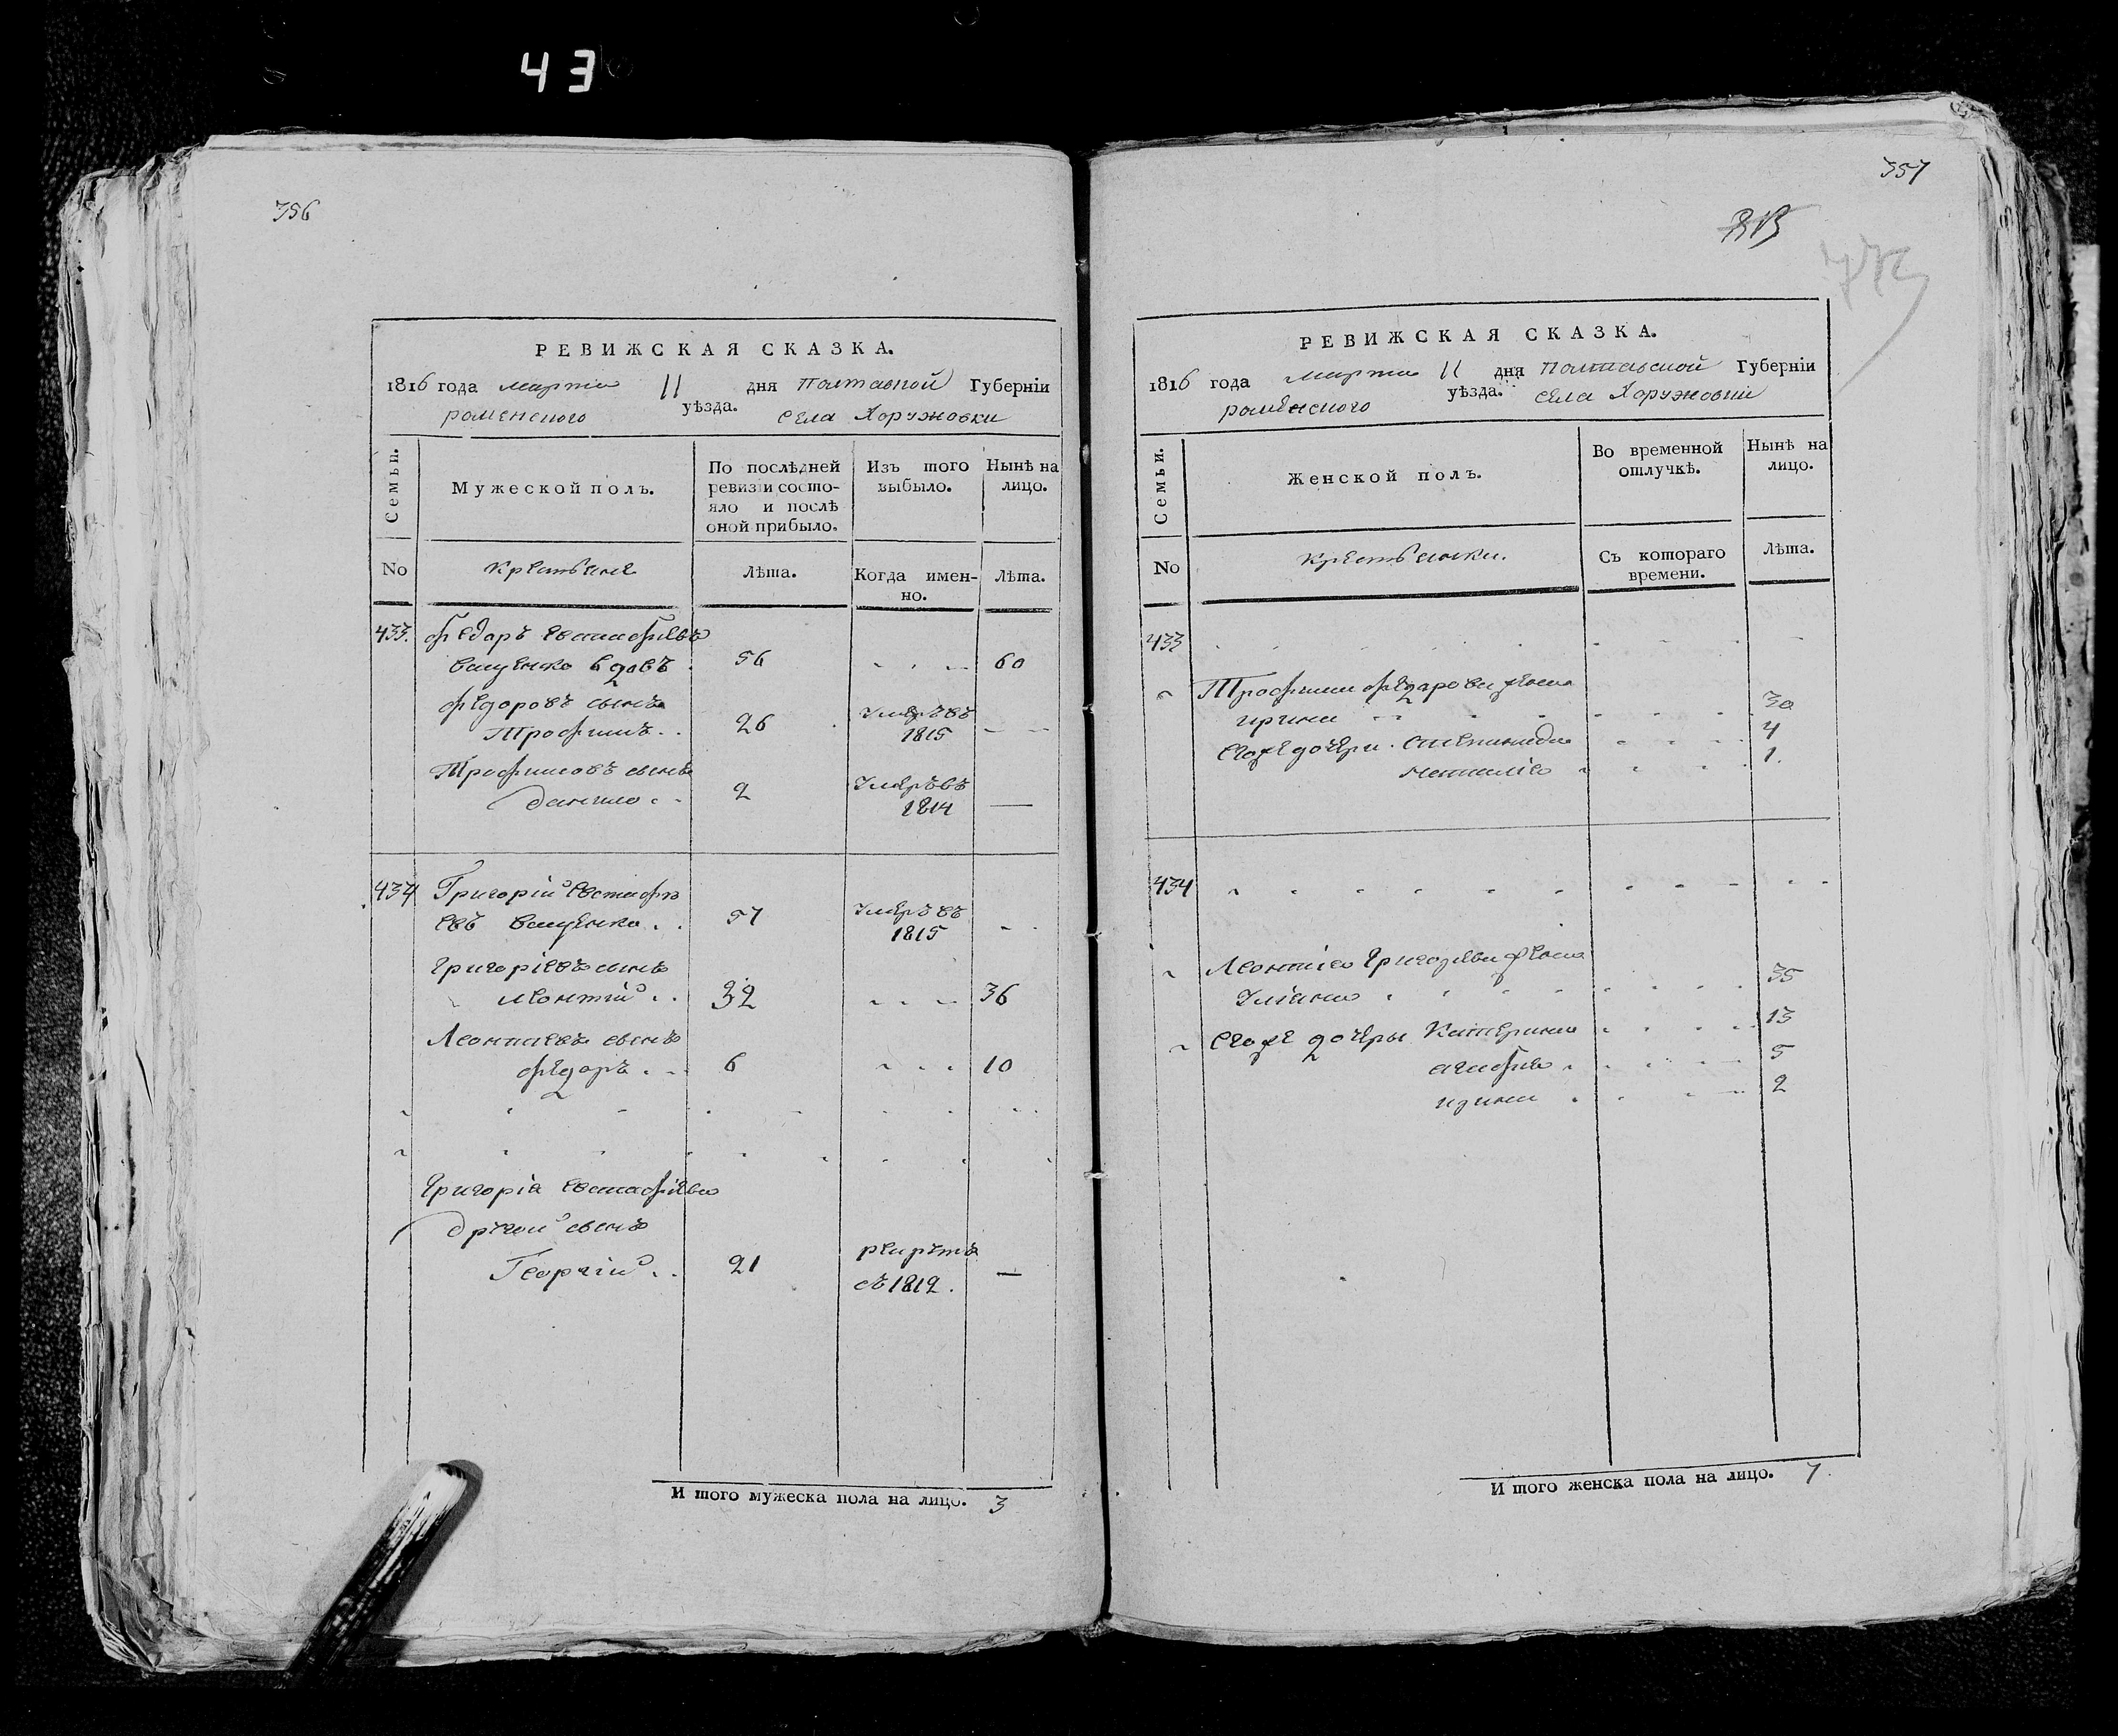 43
356
РЕВИЖСКАЯ СКАЗКА.
1816 года марта 11 дня Полтавской Губерніи
роменского уѣзда. села Хоружовки
Семьи.
Мужеской полъ.
По послѣдней ревизіи состояло и послѣ оной прибыло.
Изъ того выбыло.
Нынѣ на лицо.
No
крестьяне
Лѣта.
Когда имен-
но.
Лѣта.
433. федоръ Евстафіевъ
ващенко вдовъ 56 60
федоровъ сынъ
Трофимъ 26 Умрѣ въ 1815
Трофимовъ сынъ
данило 2 Умрѣ въ 1814
434 Григорій Евстафі
евъ ващенко 57 Умрѣ въ 1815
григоріевъ сынъ
леонтій 32 36
Леонтіевъ сынъ
федоръ 6 10
григорія Евстафіева
другой сынъ
Георгій 21 рекрутъ
съ 1812.
И того мужеска пола на лицо. 3
357
РЕВИЖСКАЯ СКАЗКА.
1816 года марта 11 дня Полтавской Губерніи
роменского уѣзда. села Хоружовки
Семьи.
Женской полъ.
Во временной отлучкѣ.
Нынѣ на лицо.
No
крестьянки.
Съ котораго
времени.
Лѣта.
433
Трофима федорова жена
ирина 30
Егоже дочери степанида 4
наталія 1.
434
Леонтіа Григоріева жена
Уліана 35
Егоже дочеры Катерина 13
агафія 5
ирина 2
И того женска пола на лицо. 7